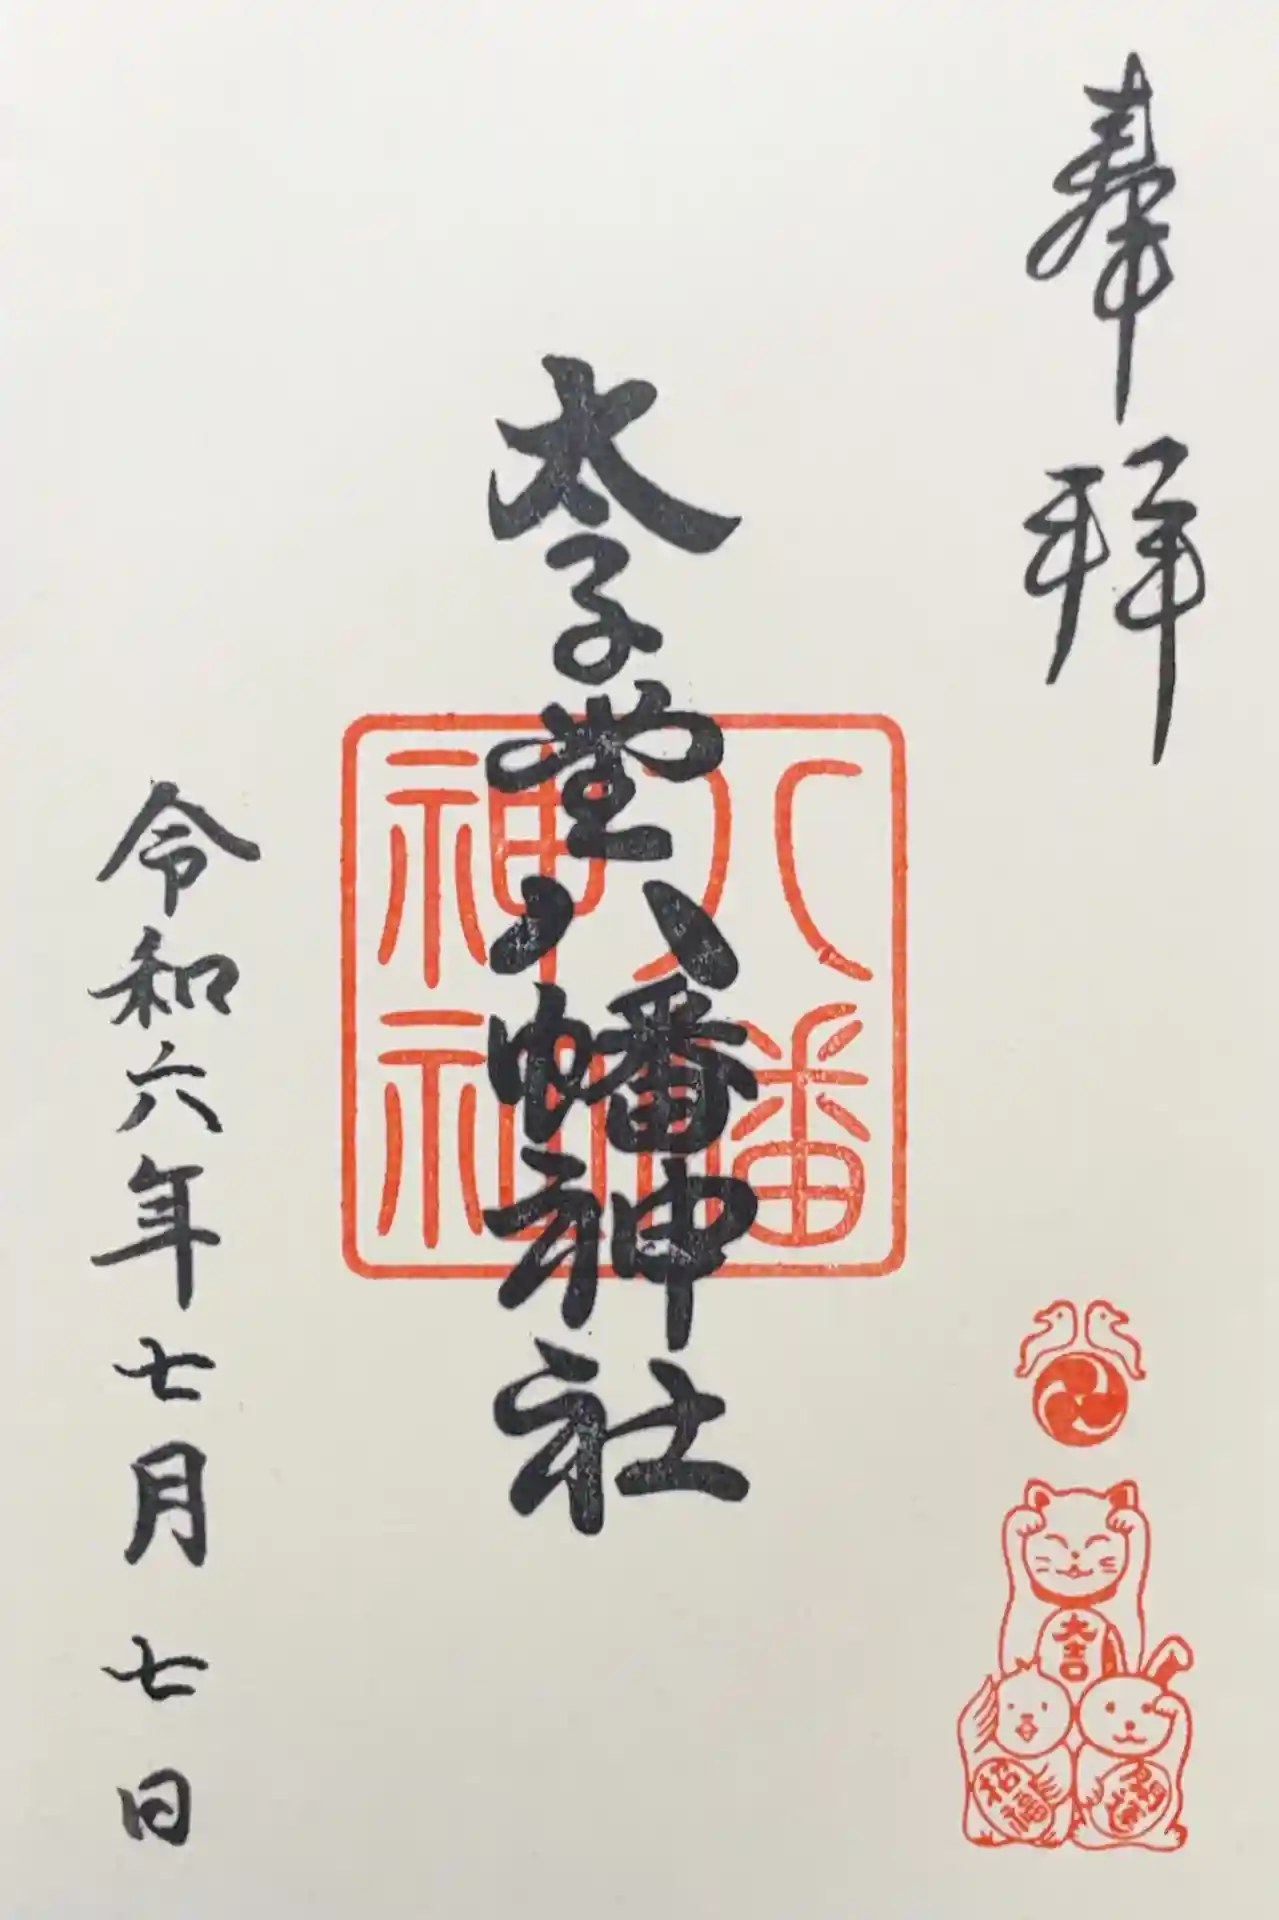 奉拝
太子堂八幡神社
八幡
神社
令和六年七月七日
大吉
開運
招福